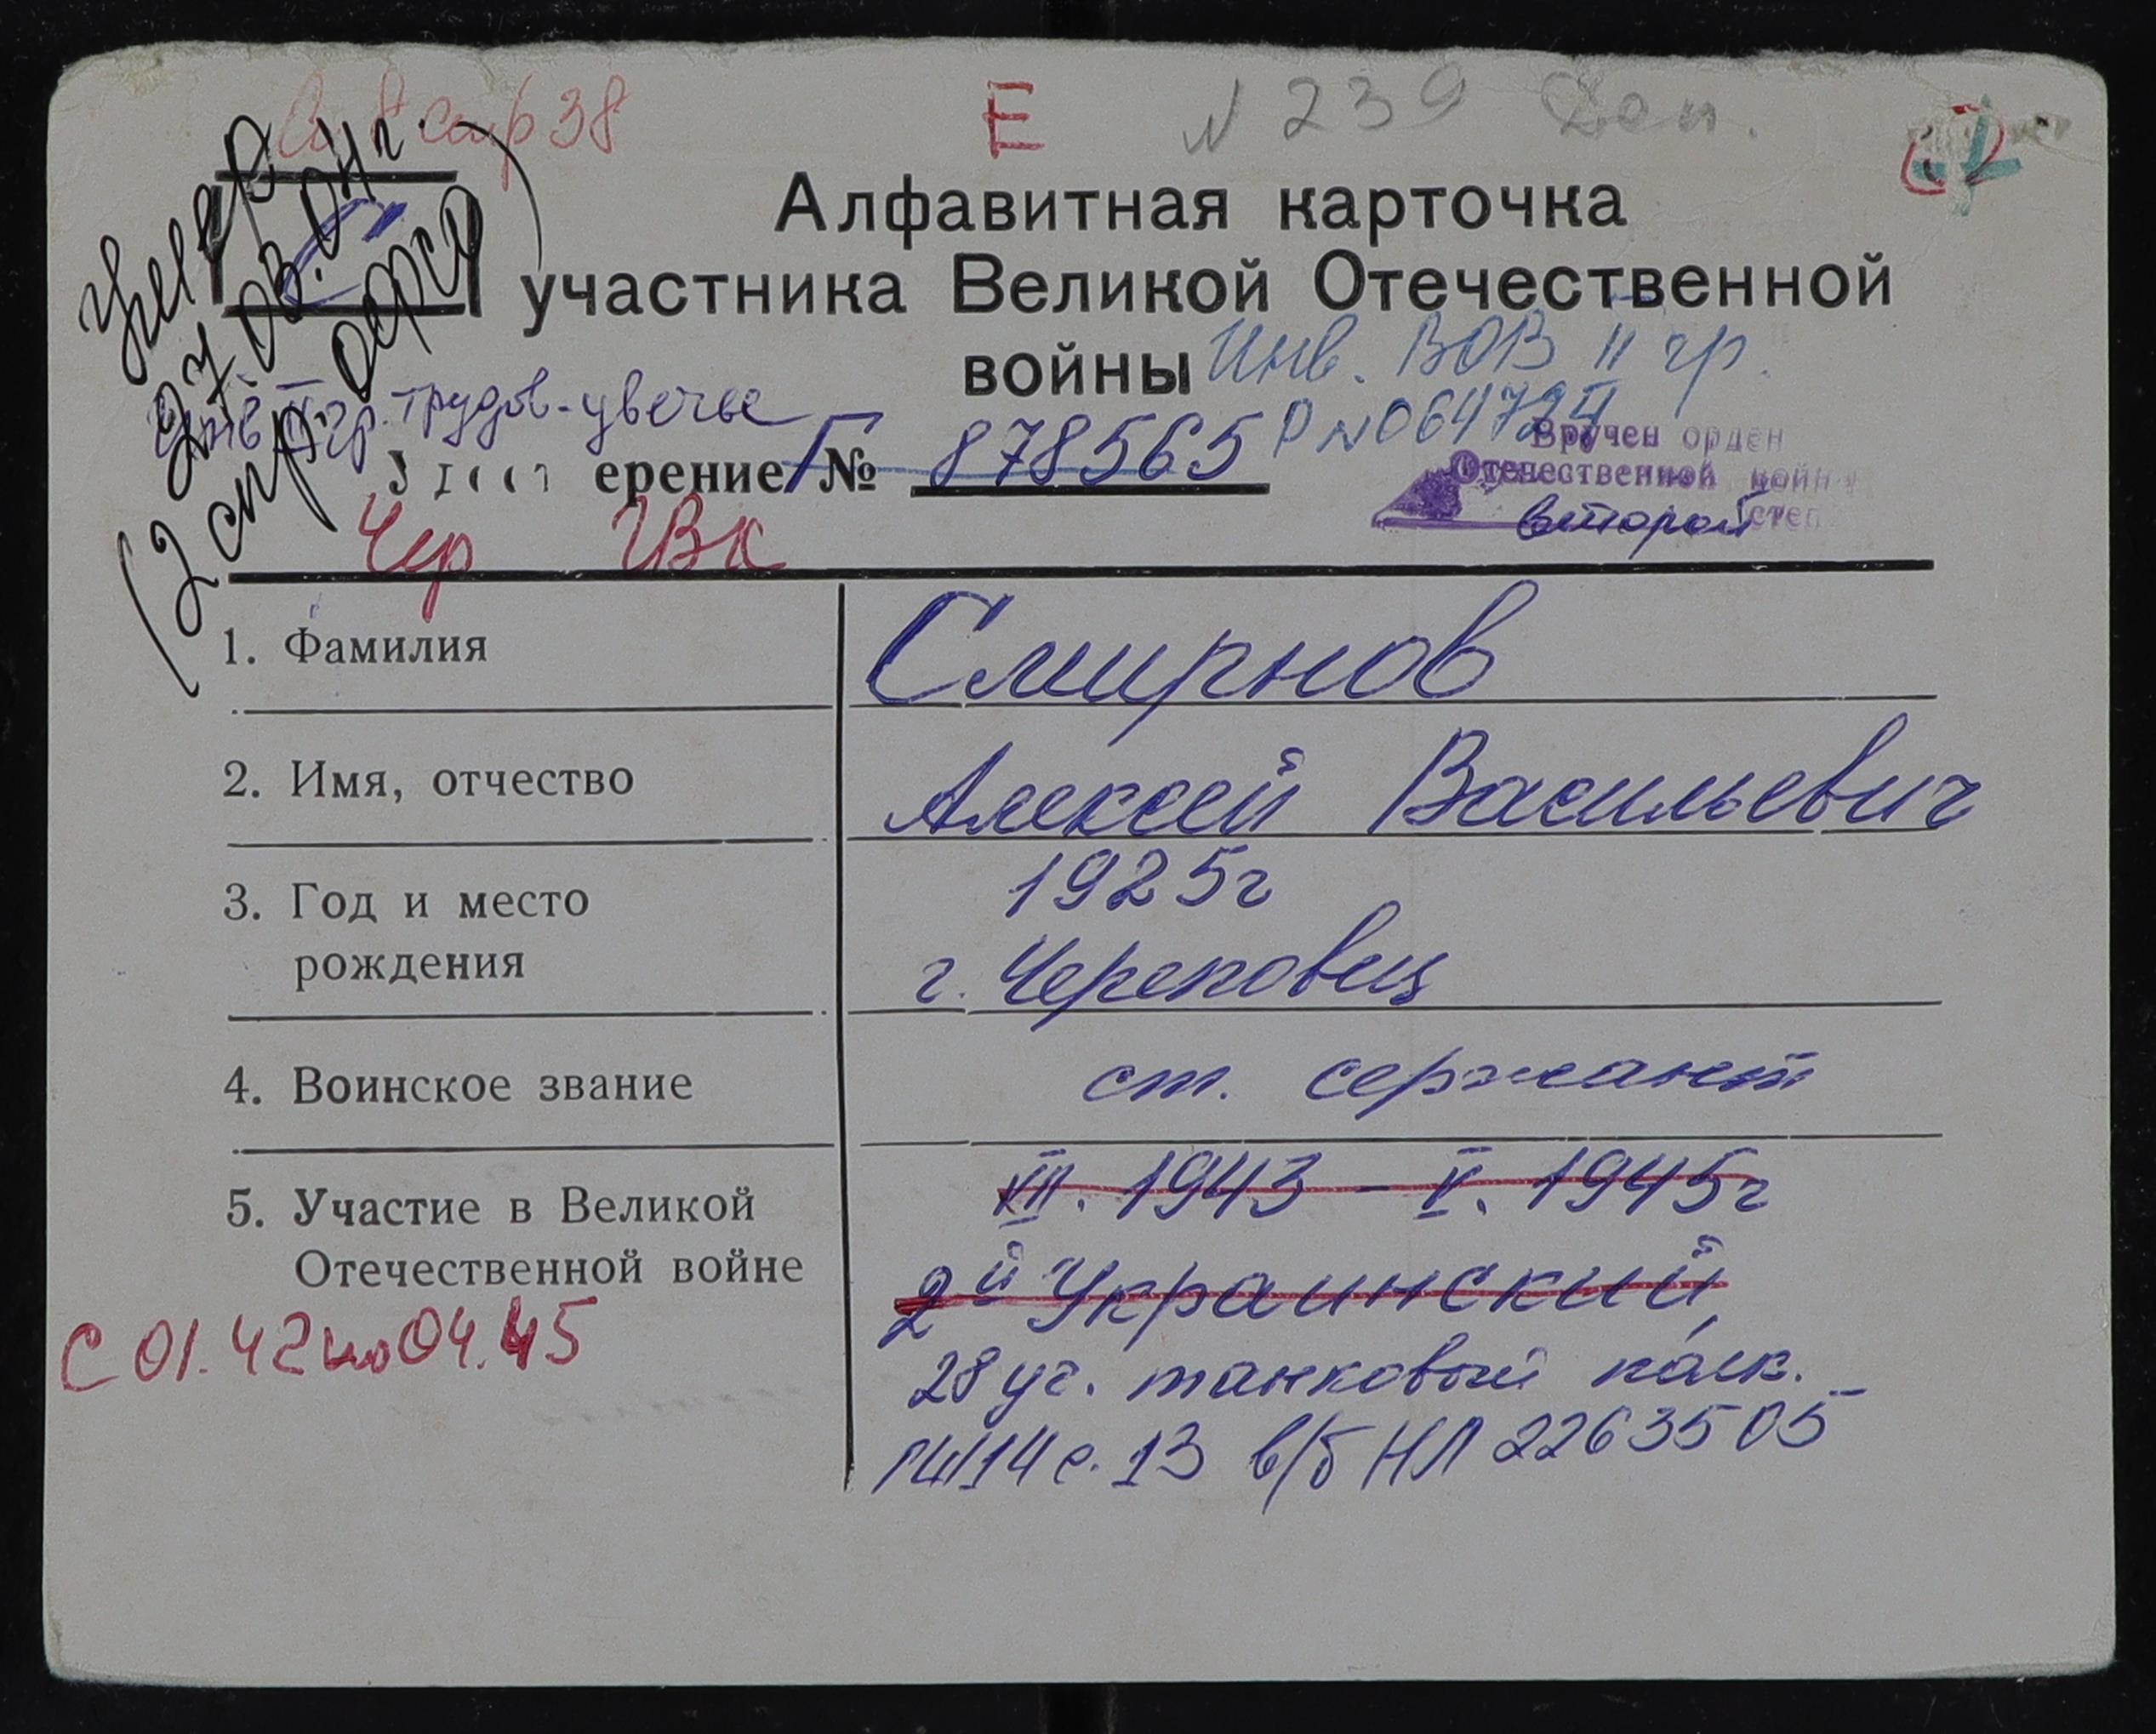 стр 38
Е
N 239 Доп.
Алфавитная карточка
участника Великой Отечественной
войны Инв. ВОВ II гр.
умер
27.03.04г.
(2 стр.
II гр. трудов. увечье
ерение Г № 878565 Р N 064724
Вручен орден
Отечественной войны
второй степ
Чер ГВК
1. Фамилия Смирнов
2. Имя, отчество Алексей Васильевич
3. Год и место 1925г
рождения г. Череповец
4. Воинское звание ст. сержант
5. Участие в Великой VII. 1943 – V. 1945г
Отечественной войне 2й Украинский
С 01.42 по 04.45
28 уч. танковый полк.
с. 13 в/б НЛ 2263505